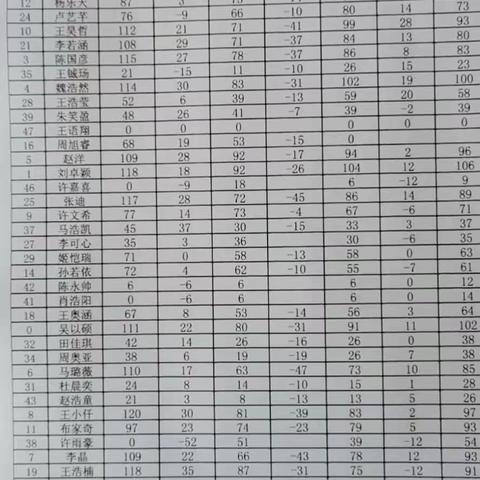 12 杨乐天 87 3 75 73
24 卢艺芊 76 -9 66 -10 80 14 73
10 王昊哲 112 21 71 -41 99 28 93
21 李若涵 108 29 71 -37 84 13 80
3 陈国彦 115 27 78 -37 86 8 83
35 王铖玚 21 -15 11 -10 26 15 23
4 魏浩然 114 30 83 -31 102 19 100
28 王浩莹 52 6 39 -13 59 20 58
39 朱笑盈 48 26 41 -7 39 -2 39
47 王语翔 0 0 0 0 0
16 周旭睿 68 19 53 -15 0
5 赵洋 109 28 92 -17 94 2 96
1 刘卓颖 118 18 92 -26 104 12 106
46 许嘉喜 0 -9 18 6 -12 9
25 张迪 117 28 72 -45 86 14 89
9 许文希 77 14 73 -4 67 -6 71
37 马浩凯 45 37 30 -15 33 3 37
27 李可心 35 3 36 30 -6 35
29 姬恺瑞 71 0 58 -13 58 0 63
14 孙若依 72 4 62 -10 55 -7 61
42 陈永帅 6 -6 6 6 0 12
41 肖浩阳 0 -6 6 6 0 14
18 王奥涵 67 8 53 -14 56 3 64
0 吴以硕 111 22 80 -31 91 11 102
32 田佳琪 42 14 26 -16 26 0 38
34 周奥亚 38 6 19 -19 26 7 38
6 马璐薇 110 17 63 -47 73 10 85
31 杜晨奕 24 8 14 -10 15 1 28
43 赵浩童 21 3 8 -13 13 5 26
8 王小仟 120 30 81 -39 83 2 97
11 布家奇 97 23 74 -23 79 5 93
38 许雨豪 0 -52 51 39 -12 54
7 李晶 109 22 66 -43 78 12 93
19 王浩楠 118 35 87 -31 75 -12 91